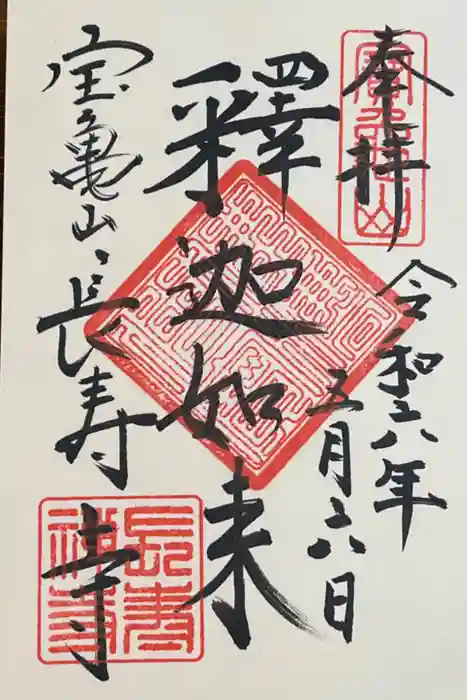 奉拝
令和六年
五月六日
釋迦如来
宝亀山 長寿寺
長壽
禅寺